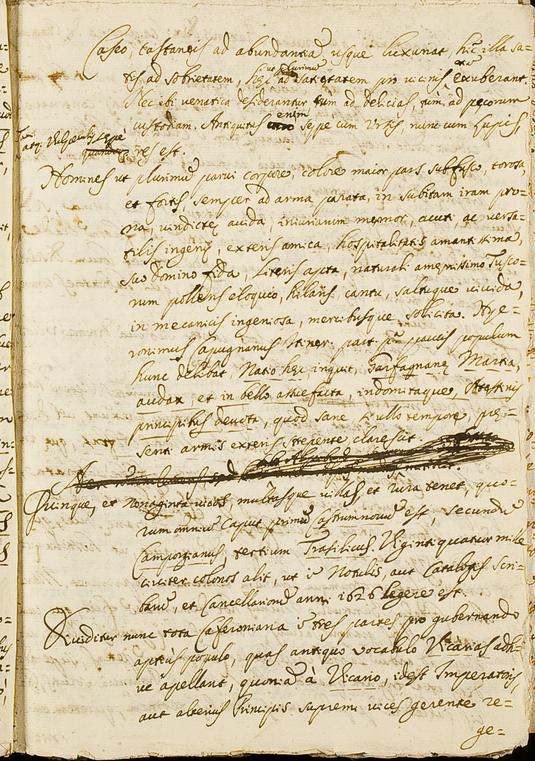 Caseo, castaneis ad abundantiā usque luxuriat, hic illa sa-
tis ad sobrietatem, hęc ad satietatem pro vicinis exuberant.
Nec ibi venatica desiderantur tum ad delicias, tum ad pecorum
custodiam. Antiquitus enim sępe cum Ursis, nunc cum Lupis,
res est.
Homines ut plurimū parui corpore, colore maior pars subfusco, torosa,
et fortis, semper ad arma parata, in subitam iram pro-
na, vindictę auida, iniuriarum memor, acuti, ac versa-
tilis ingenij, exteris amica, hospitalitatis amantissima,
suo Domino fida, Literis apta, naturali amęnissimo Tusco-
rum pollens eloquio, hilaris cantu, saltuque vivida,
in mecanicis ingeniosa, mercibusque solicita. Hye-
ronimus Capugnanus Itiner. part. paucis populum
hunc describit Natio hęc inquit, Garfagnanę Martia,
audax, et in bello assuefacta, indomitaque, Atestinis
principibus deuota, quod sane si ullo tempore, prę-
senti armis exteris strepente clarescit.
Quinque, et nonaginta vicos, multasque villas, et rura tenet, quo-
rum omniū Caput primū Castrumnovū est, secundū
Camporgianus, tertium Trasilicus. Viginti quatuor mille
circiter colonos alit, ut in Notulis, aut Catalogis
et Cancellariorū anni 1626 legere est.
Diuiditur nunc tota Caferoniana in tres partes pro gubernando
aptius populo, quas antiquo vocabulo Vicarias adh-
uc apellant, quoniā à Vicario, idest Imperatoris,
aut alterius Principis supremi vices gerente re-
ge-